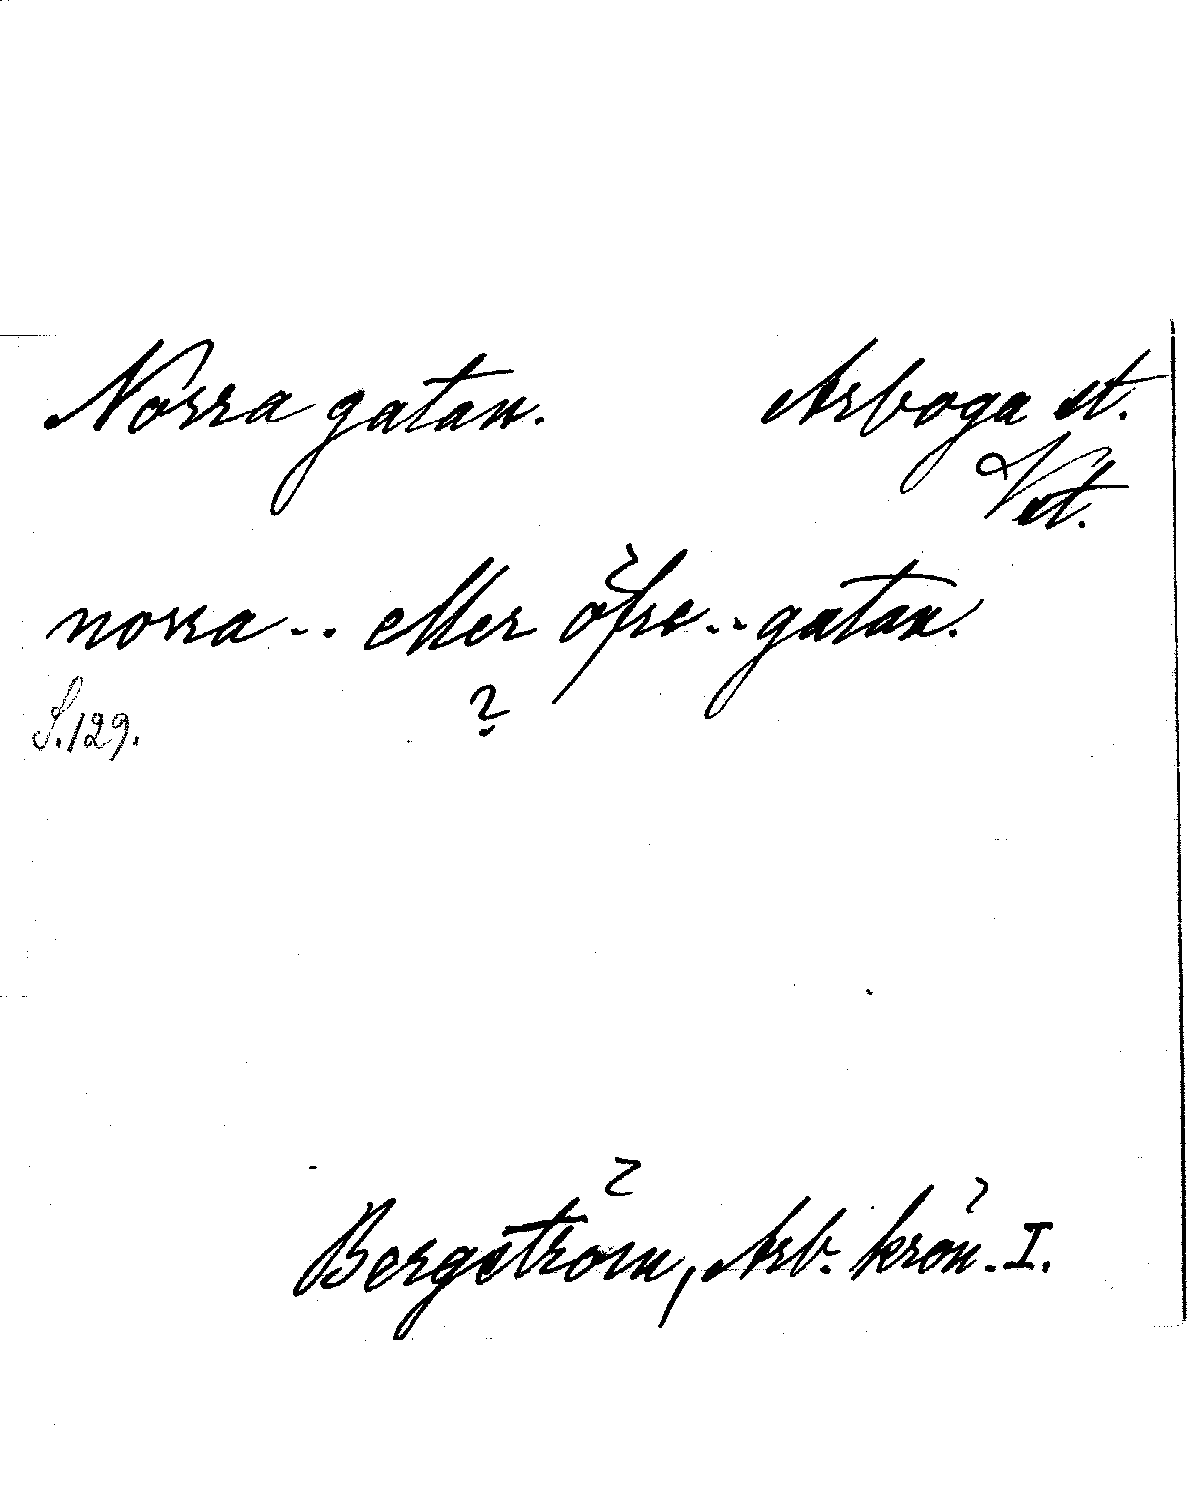 Norra gatan. Arboga st.
Vst.
norra .. eller öfre .. gatan.
S. 129. ?
Bergström, Arb. krön. I.